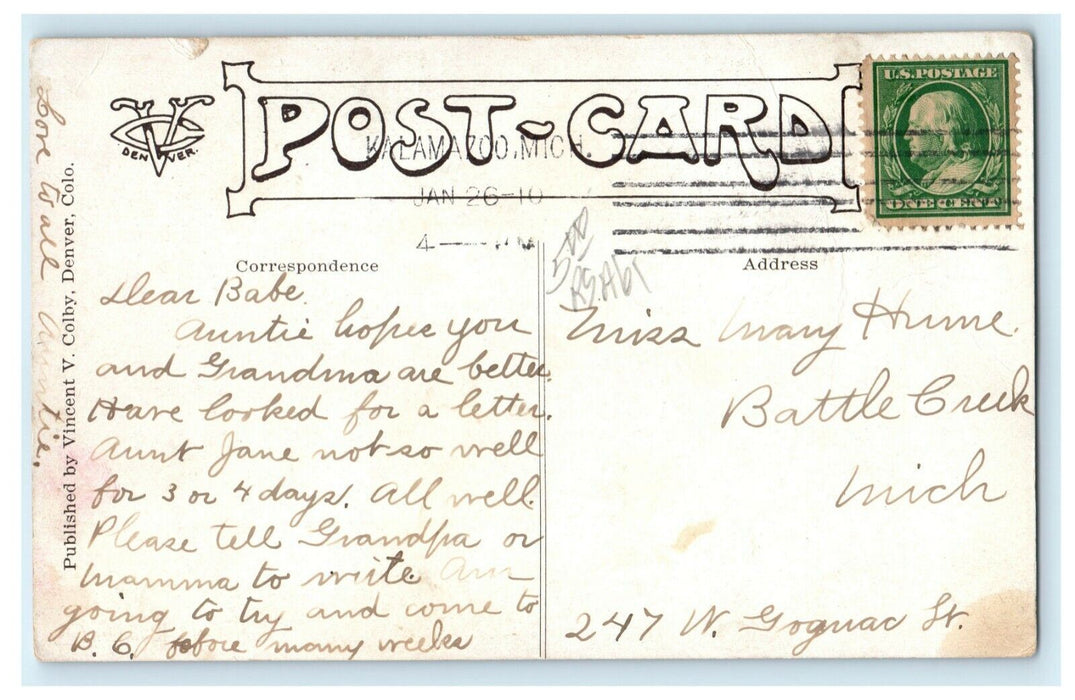 POST-CARD
DENVER.
KALAMAZOO, MICH.
JAN 26-10
4
U.S. POSTAGE
ONE CENT
Correspondence
Address
Dear Babe.
Auntie hopes you
and Grandma are better.
Have looked for a letter.
Aunt Jane not so well
for 3 or 4 days. All well.
Please tell Grandpa or
Mamma to write. Am
going to try and come to
B. C. before many weeks
Love to all Auntie,
Published by Vincent V. Colby, Denver, Colo.
500
Miss Mary Hume.
Battle Creek
Mich
247 W. Goguac St.